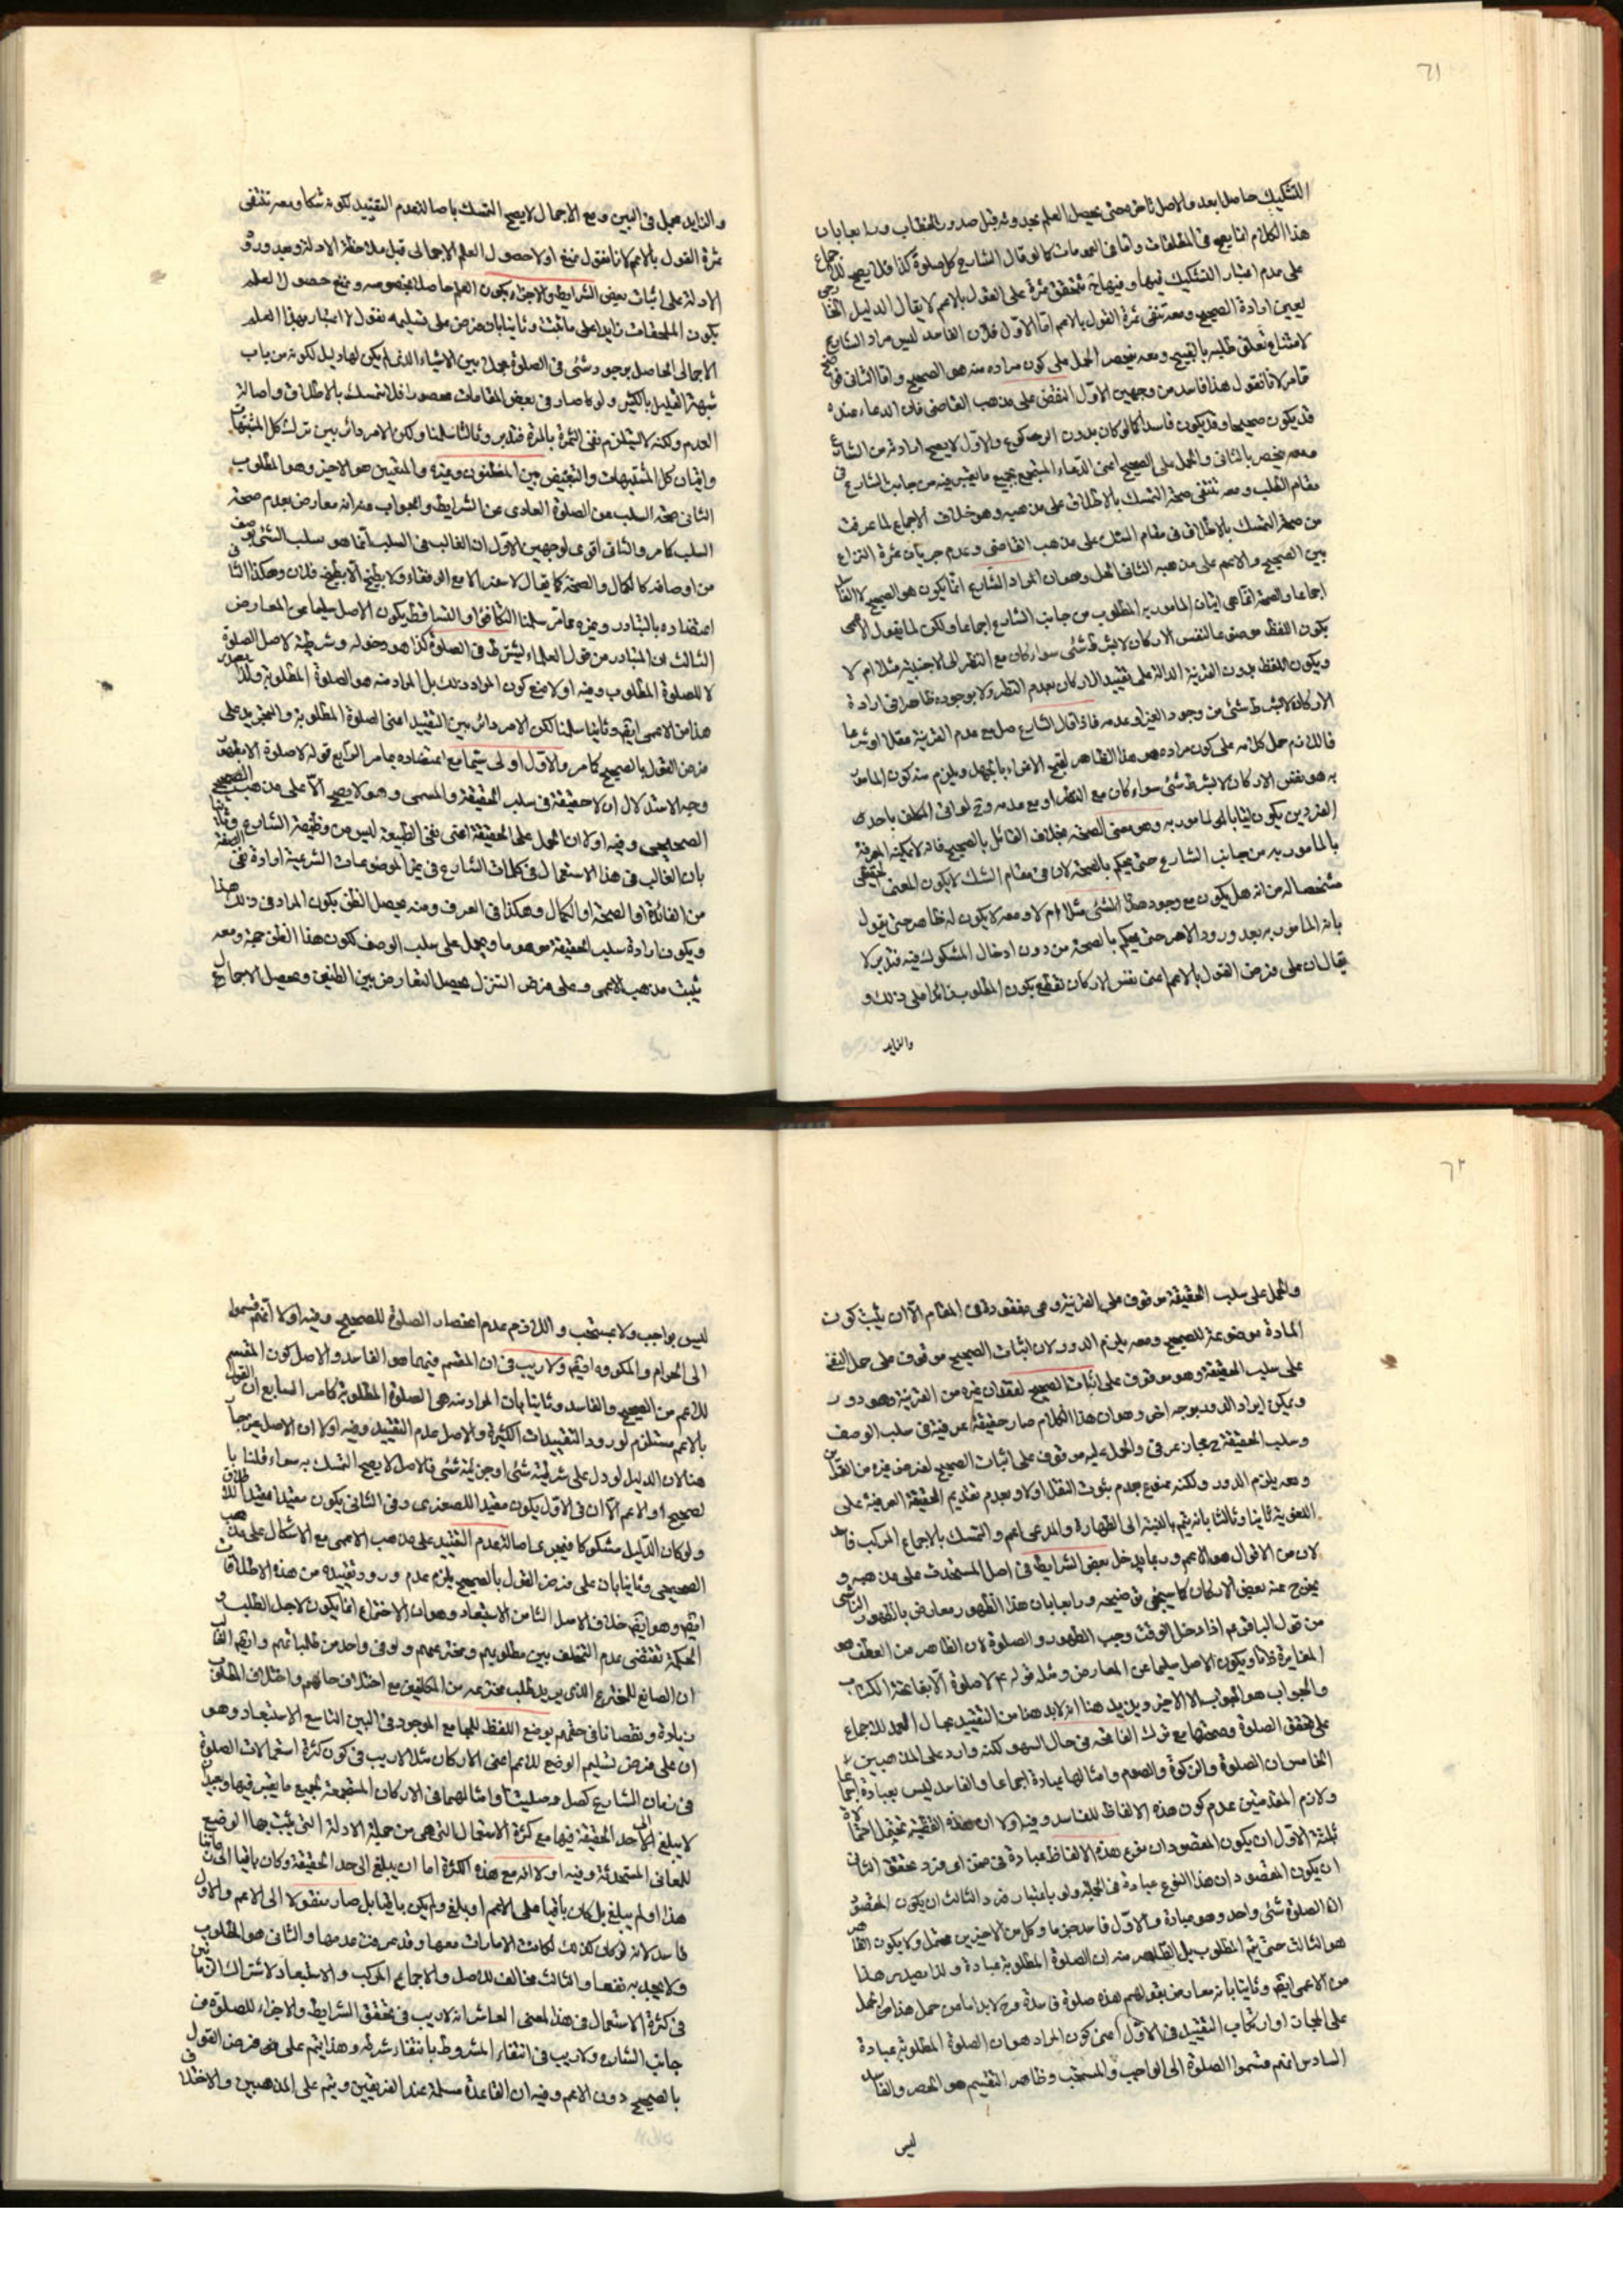 ٦١
التشكيك حاصلا بعد والاصل تاخره حتى يحصل العلم بحدوثه قبل صدور الخطاب ورابعا بان
هذا الكلام انما يصح فى المطلقات واما فى العمومات كما لو قال الشارع كل صلوة كذا فلا يصح
على عدم اعتبار التشكيك فيها وفيها تتحقق ثمرة على القول بالاعم لا يقال الدليل
يعين ارادة الصحيح ومعه تنتفى ثمرة القول بالاعم اما الاول فلان الفاسد ليس مراد الشارع
لامتناع تعلق طلبه بالقبيح ومعه ينحصر الحمل على كون مراده منه هو الصحيح واما الثانى
فما مر لانا نقول هذا فاسد من وجهين الاول النقض على مذهب القاضى فان الدعاء عنده
قد يكون صحيحا وقد يكون فاسدا كما لو كان بدون الركوع والاول لا يصح ارادته من الشارع
ومعه ينحصر بالثانى والحمل على الصحيح اعنى الدعاء المستجمع بجميع ما يعتبر فيه من جانب الشارع فى
مقام الطلب ومعه تنتفى صحة التمسك بالاطلاق على مذهبه وهو خلاف الاجماع لما عرفت
من صحة التمسك بالاطلاق فى مقام الشك على مذهب القاضى وعدم جريان ثمرة النزاع
بين الصحيح والاعم على مذهبه الثانى الحل وهو ان المراد الشارع انما يكون هو الصحيح لا الفاسد
اجماعا والصحة انما هى اتيان المامور به المطلوب من جانب الشارع اجماعا ولكن لما يقول الاعمى
بكون اللفظ موضوعا لنفس الاركان لا بشرط شئى سواء كان مع النظر الى الاجنبية مثلا ام لا
ويكون اللفظ بدون القرينة الدالة على تقييد الاركان بعدم النظر ولا بوجوده ظاهرا فى ارادة
الاركان لا بشرط شئى من وجود الغير او عدمه فاذا قال الشارع صل مع عدم القرينة عقلا او شرعا
فاللازم حمل كلامه على كون مراده هو هذا الظاهر لقبح الاغراء بالجهل ويلزم منه كون المامور
به هو نفس الاركان لا بشرط شئى سواء كان مع النظر او مع عدمه وح لو اتى المكلف باحدى
الفردين يكون اتيانا بالمامور به وهو معنى الصحة بخلاف القائل بالصحيح فانه لا يمكنه المعرفة
بالمامور به من جانب الشارع حتى يحكم بالصحة لان فى مقام الشك لا يكون المعنى الحقيقى
مشخصا له من انه هل يكون مع وجود هذا الشئى مثلا ام لا ومعه لا يكون له ظاهر حتى يقول
بانه المامور به بعد ورود الامر حتى يحكم بالصحة من دون ادخال المشكوك فيه فتدبر لا
يقال ان على فرض القول بالاعم اعنى نفس الاركان نقطع بكون المطلوب زائدا على ذلك و
والزايد
والزايد مجمل فى البين ومع الاجمال لا يصح التمسك باصالة عدم التقييد لكونه شكا ومعه تنتفى
ثمرة القول بالاعم لانا نقول نمنع اولا حصول العلم الاجمالى قبل ملاحظة الادلة وبعد ورود
الادلة على اثبات بعض الشرايط والاجزاء يكون العلم حاصلا بخصوصه ونمنع حصول العلم
بكون الملحقات زايدا على ما ثبت وثانيا بان فرض على تسليمه نقول لا اعتبار بهذا العلم
الاجمالى الحاصل بوجود شئى فى الصلوة مجملا بين الاشياء الذى لم يكن لها دليل لكونه من باب
شبهة القليل بالكثير ولو صار فى بعض المقامات محصورا فلا نتمسك بالاطلاق واصالة
العدم ولكنه لا يستلزم نفى الثمرة بالمرة فتدبر وثالثا سلمنا ولكن الامر دائر بين ترك كل المشتبهات
واتيان كل المشتبهات والتبعيض بين المظنون وغيره والمتعين هو الاخير وهو المطلوب
الثانى صحة السلب عن الصلوة العارى عن الشرايط والجواب عنه انه معارض بعدم صحة
السلب كما مر والثانى اقوى لوجهين الاول ان الغالب فى السلب انما هو سلب الشئى بوصف
من اوصافه كالكمال والصحة كما يقال لا خبر الا مع الوفقاء ولا بطيخ الا بطيخ فلان وهكذا
اعتضاده بالتبادر وغيره مما مر سلمنا التكافؤ والتساقط يكون الاصل سليما عن المعارض
الثالث ان المتبادر من قول العلماء يشترط فى الصلوة كذا هو دخوله وشرطيته لاصل الصلوة
لا للصلوة المطلوب وفيه اولا منع كون المراد ذلك بل المراد منه هو الصلوة المطلوبة ولذا يصدر
هذا من الاعمى ايضا وثانيا سلمنا لكن الامر دائر بين التقييد اعنى الصلوة المطلوبة والتجوز على
فرض القول بالصحيح كما مر والاول اولى سيما مع اعتضاده بما مر الرابع قوله لا صلوة الا بطهور
وجه الاستدلال ان لا حقيقة فى سلب الحقيقة والمسمى وهو لا يصح الا على مذهب الصحيح
الصحيحى وفيه اولا ان الحمل على الحقيقة اعنى نفى الطبيعة ليس من وظيفة الشارع وثانيا
بان الغالب فى هذا الاستعمال فى كلمات الشارع فى غير الموضوعات الشرعية ارادة نفى الصفة
من الفائدة او الصحة او الكمال وهكذا فى العرف ومنه يحصل الظن بكون المراد فى ذلك هذا
ويكون ارادة سلب الحقيقة موهوما ويحمل على سلب الوصف لكون هذا الظن حجة ومعه
يثبت مذهب الاعمى وعلى فرض التنزل يحصل التعارض بين الظنين ويحصل الاجمال
٦٢
والحمل على سلب الحقيقة موقوف على القرينة وهى مفقودة فى المقام الا ان يثبت كون
المادة موضوعة للصحيح ومعه يلزم الدور لان اثبات الصحيح موقوف على حمل النفى
على سلب الحقيقة وهو موقوف على اثبات الصحيح لفقدان غيره من القرينة وهو دور
ويمكن ايراد الدور بوجه اخر وهو ان هذا الكلام صار حقيقة عرفية فى سلب الوصف
وسلب الحقيقة ح مجاز عرفى والحمل عليه موقوف على اثبات الصحيح لفرض غيره من القراين
ومعه يلزم الدور ولكنه ممنوع بعدم ثبوت النقل اولا وبعدم تقديم الحقيقة العرفية على
اللغوية ثانيا وثالثا بانه يتم بالنسبة الى الطهارة والمدعى اعم والتمسك بالاجماع المركب فاسد
لان من الاقوال هو الاعم وربما يدخل بعض الشرايط فى اصل المستحدث على مذهبه و
يخرج عنه بعض الاركان كما سيجئى توضيحه ورابعا بان هذا الظهور معارض بالظهور الناشى
من قول الباقر عم اذا دخل الوقت وجب الطهور والصلوة لان الظاهر من العطف هو
المغايرة ذاتا ويكون الاصل سليما عن المعارض ومثله قوله ع لا صلوة الا بفاتحة الكتاب
والجواب هو الجواب الا الاخير ويزيد هنا انه لابد هنا من التقييد بحال العمد للاجماع
على تحقق الصلوة وصحتها مع ترك الفاتحة فى حال السهو لكنه وارد على المذهبين
الخامس ان الصلوة والزكوة والصوم وامثالها عبادة اجماعا والفاسد ليس بعبادة اجماعا
ولازم المقدمتين عدم كون هذه الالفاظ للفاسد وفيه اولا ان هذه القضية تحتمل احتمالات
ثلثة الاول ان يكون المقصود ان نوع هذه الالفاظ عبادة فى ضمن اى فرد تحقق الثانى
ان يكون المقصود ان هذا النوع عبادة فى الجملة ولو باعتبار فرد الثالث ان يكون المقصود
ان الصلوة شئى واحد وهو عبادة والاول فاسد جزما وكل من الاخيرين محتمل ولا يكون الظاهر
هو الثالث حتى يتم المطلوب بل الظاهر منه ان الصلوة المطلوبة عبادة ولذا يصدر هذا
من الاعمى ايضا وثانيا بانه معارض بقولهم هذه صلوة فاسدة وح لابد اما من حمل هذا الحمل
على المجاز او ارتكاب التقييد فى الاول اعنى كون المراد هو ان الصلوة المطلوبة عبادة
السادس انهم قسموا الصلوة الى الواجب والمستحب وظاهر التقسيم هو الحصر والفاسد
ليس
ليس بواجب ولا بمستحب واللازم عدم اعتصار الصلوة للصحيح وفيه اولا انهم قسموا
الى الحرام والمكروه ايضا ولا ريب فى ان المقسم فيهما هو الفاسد والاصل كون المقسم
للاعم من الصحيح والفاسد وثانيا بان المراد منه هى الصلوة المطلوبة كما مر السابع ان القول
بالاعم مستلزم لورود التقييدات الكثيرة والاصل عدم التقييد وفيه اولا ان الاصل
هنا لان الدليل لو دل على شرطية شئى او جزئية شئى فالاصل لا يصح التمسك به سواء قلنا با
لصحيح او الاعم الا ان فى الاول يكون مفيدا للصغرى وفى الثانى يكون مقيدا للاطلاق
ولو كان الدليل مشكوكا فيجرى اصالة عدم التقييد على مذهب الاعمى مع الاشكال على مذهب
الصحيحى وثانيا بان على فرض القول بالصحيح يلزم عدم ورود تقييده من هذه الاطلاقات
ايضا وهو ايضا خلاف الاصل الثامن الاستبعاد وهو ان الاختراع انما يكون لاجل الطلب و
الحكمة تقتضى عدم التخلف بين مطلوبهم ومخترعهم ولو فى واحد من طلباتهم وايضا
ان الصانع للمخترع الذى يريد طلب مخترعه من المكلفين مع اختلاف حالهم واختلاف المطلوب
زيادة ونقصانا فى حقهم يوضع اللفظ للجامع الموجود فى البين التاسع الاستبعاد وهو
ان على فرض تسليم الوضع للاعم اعنى الاركان مثلا لا ريب فى كون كثرة استعمالات الصلوة
فى زمان الشارع كصل وصليت وامثالهما فى الاركان المستجمعة بجميع ما يعتبر فيها
لا يبلغ الى حد الحقيقة فيها مع كثرة الاستعمال التى هى من جملة الادلة التى يثبت بها الوضع
للمعانى المستحدثة وفيه اولا انه مع هذه الكثرة اما ان يبلغ الى حد الحقيقة وكان باقيا الى
هذا او لم يبلغ بل كان باقيا على الاعم او بلغ ولم يكن باقيا بل صار منقولا الى الاعم والاول
فاسد لانه لو كان كذلك لكانت الامارات معها وقد عرفت عدمها والثانى هو المطلوب
ولا يجديه نفعا والثالث مخالف للاصل والاجماع المركب والاستبعاد لاشتراك الزمانين
فى كثرة الاستعمال فى هذا المعنى العاشر انه لا ريب فى تحقق الشرايط والاجزاء للصلوة من
جانب الشارع ولا ريب فى انتفاء المشروط بانتفاء شرطه وهذا يتم على فرض القول
بالصحيح دون الاعم وفيه ان القاعدة مسلمة عند الفريقين ويتم على المذهبين والاختلاف فى